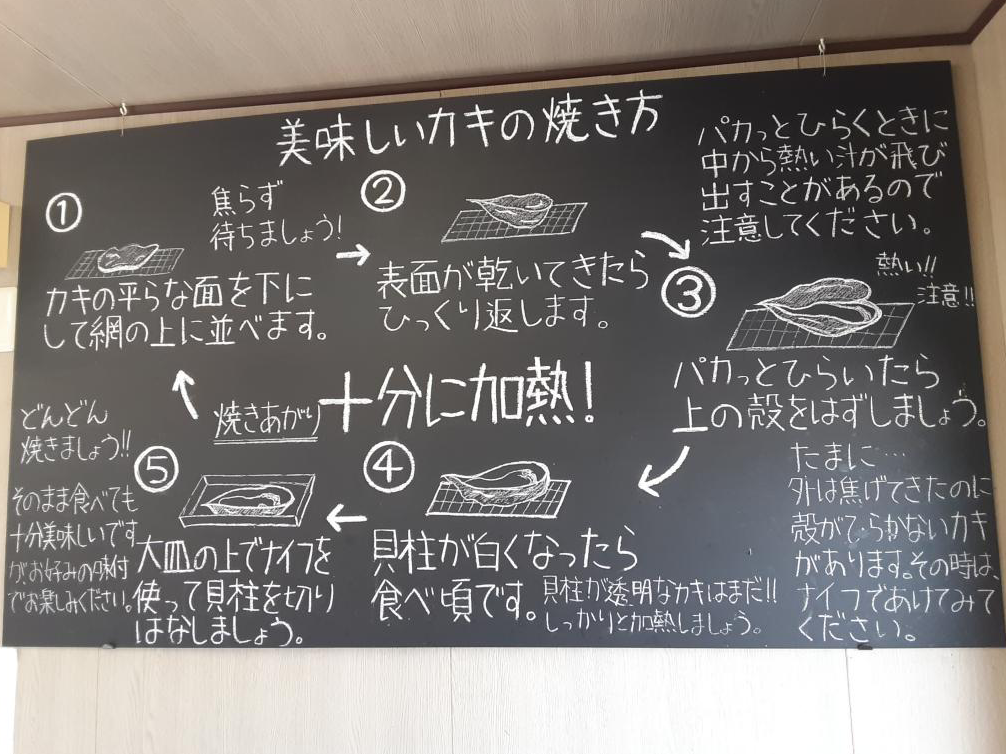 美味しいカキの焼き方
①
焦らず
待ちましょう!
カキの平らな面を下に
して網の上に並べます。
②
表面が乾いてきたら
ひっくり返します。
パカっとひらくときに
中から熱い汁が飛び
出すことがあるので
注意してください。
③
熱い!!
注意!!
パカっとひらいたら
上の殻をはずしましょう。
たまに…
外は焦げてきたのに
殻がひらかないカキ
があります。その時は、
ナイフであけてみて
ください。
十分に加熱!
④
貝柱が白くなったら
食べ頃です。
貝柱が透明なカキはまだ!!
しっかりと加熱しましょう。
焼きあがり
⑤
大皿の上でナイフを
使って貝柱を切り
はなしましょう。
どんどん
焼きましょう!!
そのまま食べても
十分美味しいです
が、お好みの味付
でお楽しみください。